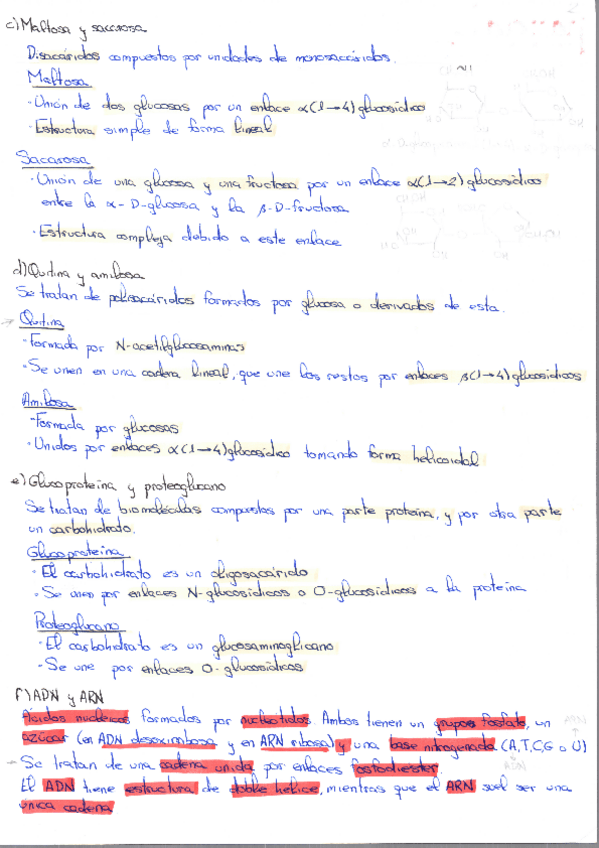 c) Maltosa y sacarosa
Disacáridos compuestos por unidades de monosacáridos.
Maltosa
· Unión de dos glucosas por un enlace α(1→4) glucosídico
· Estructura simple de forma lineal
Sacarosa
· Unión de una glucosa y una fructosa por un enlace α(1→2) glucosídico
entre la α-D-glucosa y la β-D-fructosa
· Estructura compleja debido a este enlace
d) Quitina y amilosa
Se tratan de polisacáridos formados por glucosa o derivados de esta.
→ Quitina
· Formada por N-acetilglucosaminas
· Se unen en una cadena lineal, que une los restos por enlaces β(1→4) glucosídicos
Amilosa
· Formada por glucosas
· Unidos por enlaces α(1→4) glucosídico tomando forma helicoidal
e) Glucoproteína y proteoglucano
Se tratan de biomoléculas compuestos por una parte proteína, y por otra parte
un carbohidrato.
Glucoproteína
· El carbohidrato es un oligosacárido
· Se unen por enlaces N-glucosídicos o O-glucosídicos a la proteína
Proteoglucano
· El carbohidrato es un glucosaminoglicano
· Se une por enlaces O-glucosídicos
f) ADN y ARN
Ácidos nucleicos formados por nucleótidos. Ambos tienen un grupos fosfato, un
azúcar (en ADN desoxirribosa y en ARN ribosa) y una base nitrogenada (A,T,C,G o U)
→ Se tratan de una cadena unida por enlaces fosfodiester.
El ADN tiene estructura de doble hélice, mientras que el ARN suel ser una
única cadena